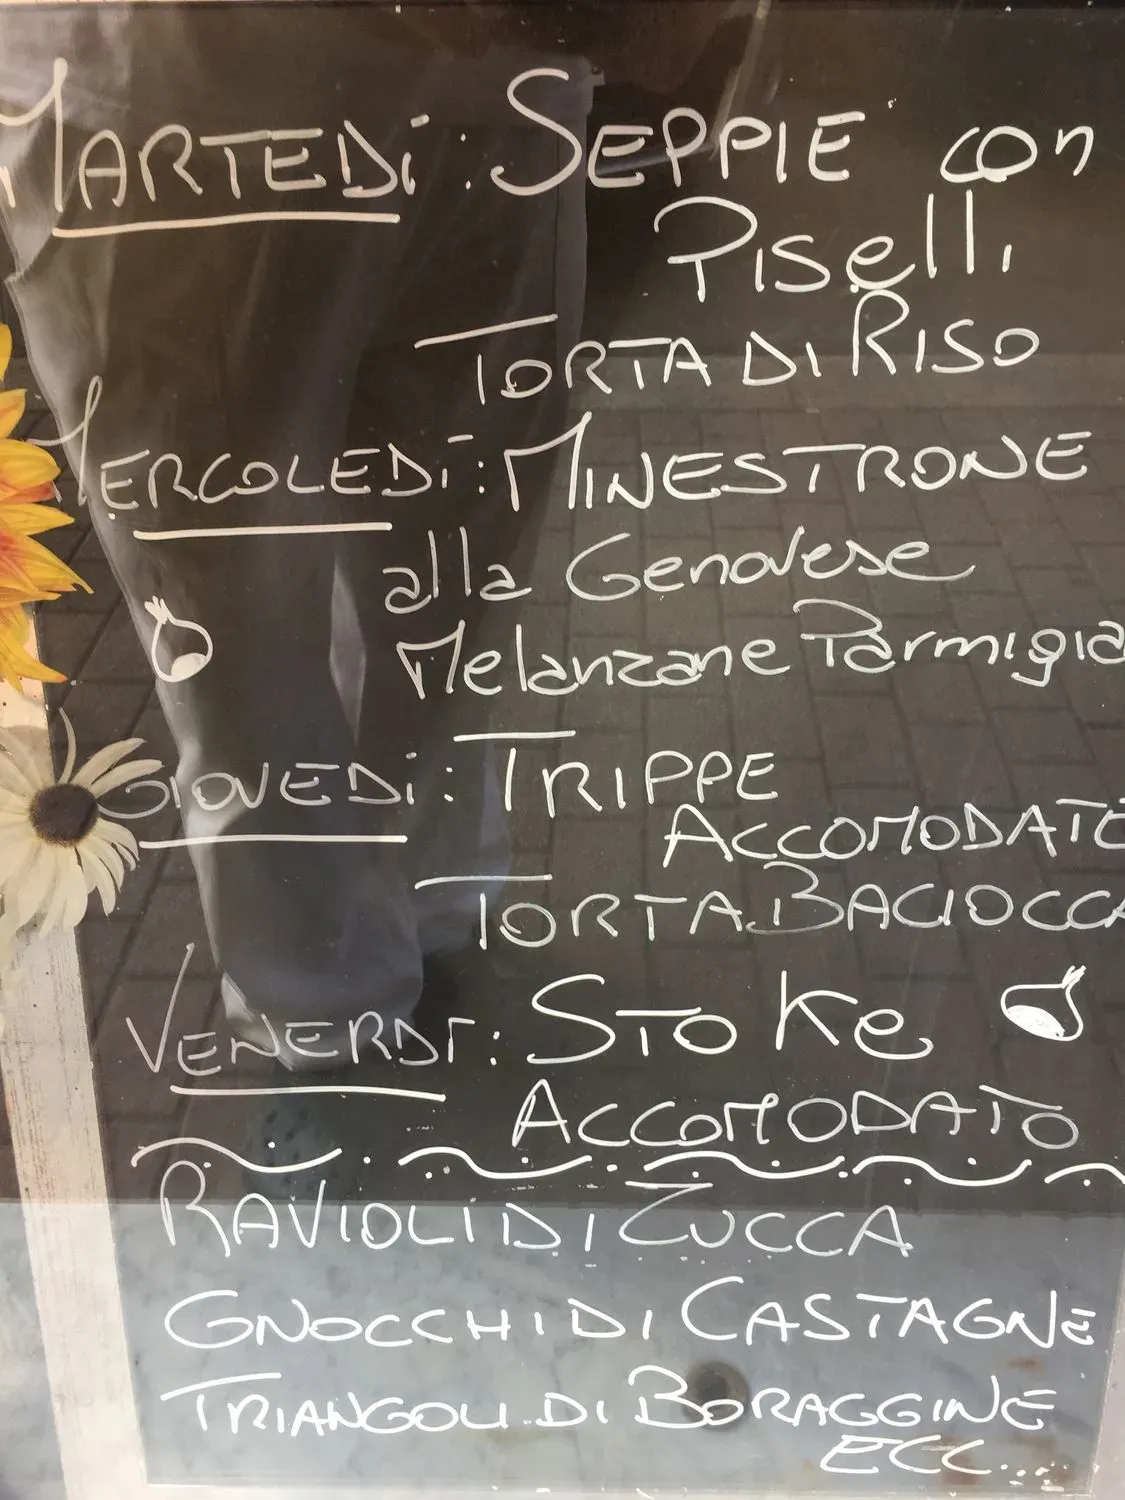 MARTEDÌ: SEPPIE con
Piselli
TORTA DI RISO
MERCOLEDÌ: MINESTRONE
alla Genovese
Melanzane Parmigia
GIOVEDÌ: TRIPPE
ACCOMODATE
TORTA BACIOCCA
VENERDÌ: STOKe
ACCOMODATO
RAVIOLI DI ZUCCA
GNOCCHI DI CASTAGNE
TRIANGOLI DI BORAGGINE
ECC...